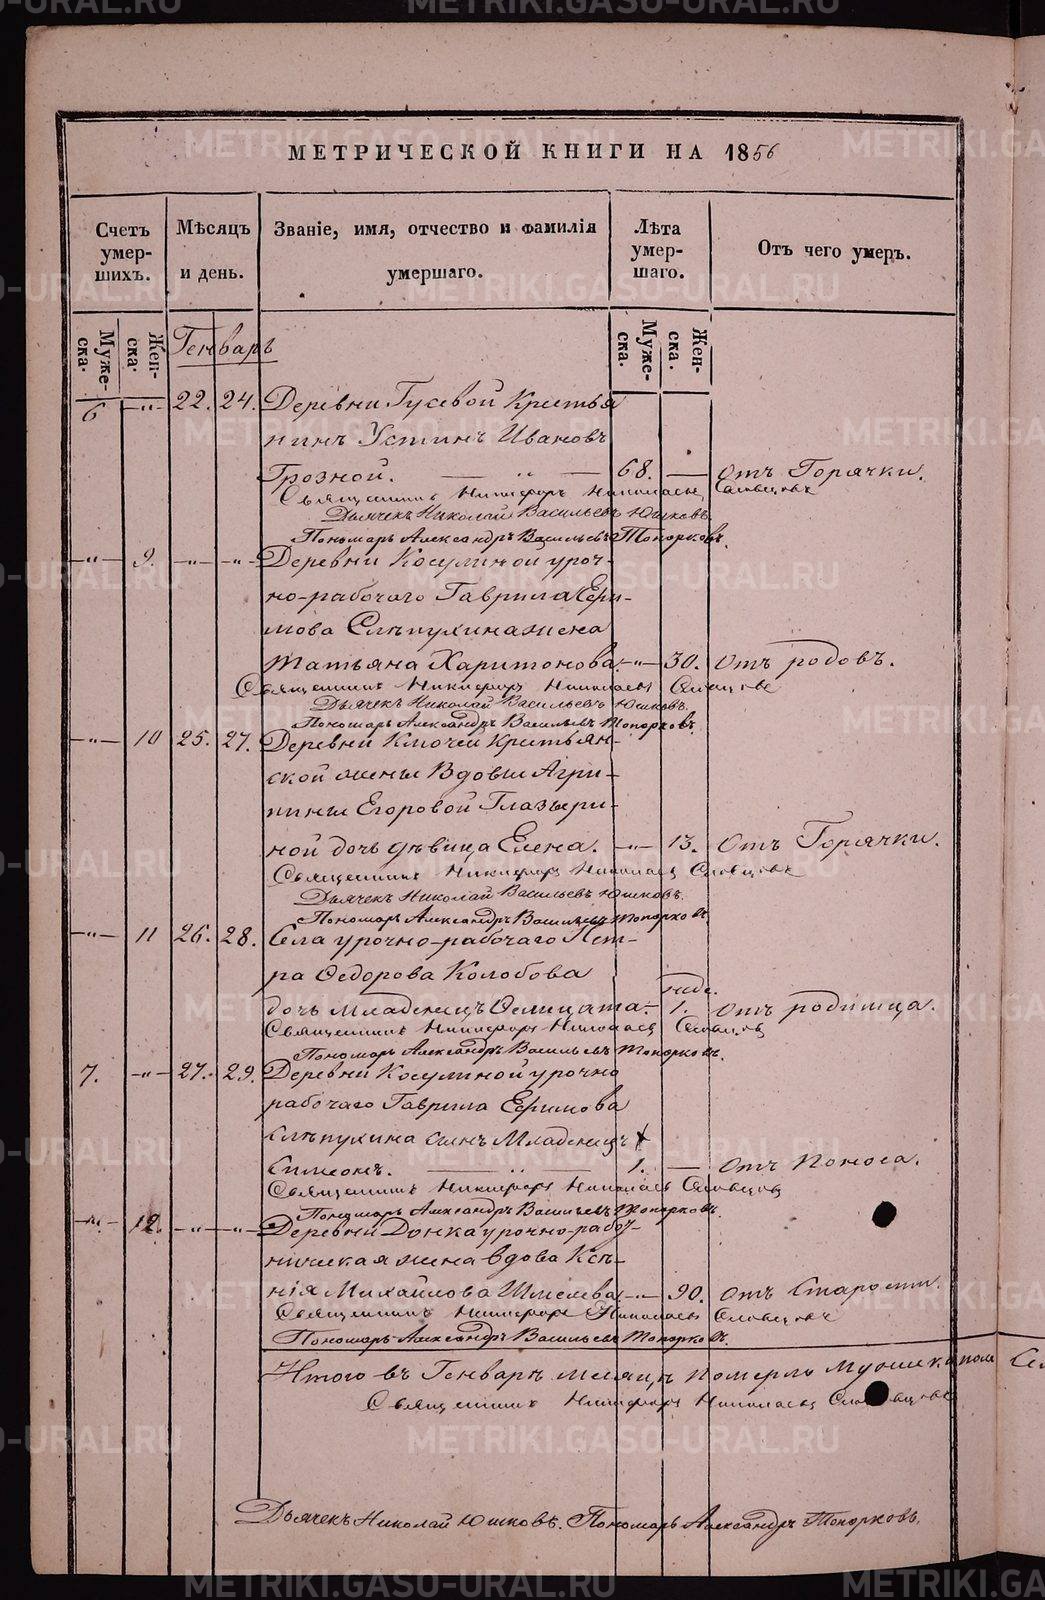 МЕТРИЧЕСКОЙ КНИГИ НА 1856
Счетъ умер-шихъ.
Мѣсяцъ и день.
Званіе, имя, отчество и фамилія умершаго.
Лѣта умер-шаго.
Отъ чего умеръ.
Муже-ска.
Жен-ска.
Генварь
Муже-ска.
Жен-ска.
6 —„— 22. 24. Деревни Гусевой Крестья
нинъ Устинъ Ивановъ
Грозной. — „ — 68. — отъ Горячки.
Священникъ Никифоръ Николаевъ Словцовъ
Дьячекъ Николай Васильевъ Юшковъ.
Пономарь Александръ Васильевъ Топорковъ.
—„— 9. —„— —„— Деревни Косулиной уроч-
но-рабочаго Гаврила Ефи-
мова Слѣпухина жена
Татьяна Харитонова. —„— 30. отъ родовъ.
Священникъ Никифоръ Николаевъ Словцовъ
Дьячекъ Николай Васильевъ Юшковъ.
Пономарь Александръ Васильевъ Топорковъ.
—„— 10 25. 27. Деревни Ключей Крестьян-
ской жены Вдовы Агри-
пины Егоровой Глазыри-
ной дочь дѣвица Елена. —„— 13. отъ Горячки.
Священникъ Никифоръ Николаевъ Словцовъ
Дьячекъ Николай Васильевъ Юшковъ.
Пономарь Александръ Васильевъ Топорковъ.
—„— 11 26. 28. Села урочно-рабочаго Пет-
ра Ѳедорова Колобова
неде.
дочь младенецъ Ѳелицата. — 1. отъ родимца.
Священникъ Никифоръ Николаевъ Словцовъ
Пономарь Александръ Васильевъ Топорковъ.
7. —„— 27. 29. Деревни Косулиной урочно
рабочаго Гаврила Ефимова
Слѣпухина сынъ Младенецъ
Симеонъ. — „ — 1. — отъ поноса.
Священникъ Никифоръ Николаевъ Словцовъ
Пономарь Александръ Васильевъ Топорковъ.
—„— 12. —„— —„— Деревни урочно-рабо-
ническая жена вдова Ксѣ-
нія Михайлова Шмелева —„— 90. отъ Старости.
Священникъ Никифоръ Николаевъ Словцовъ
Пономарь Александръ Васильевъ Топорковъ.
Итого въ Генварѣ месяцѣ померло Мужска пола
Священникъ Никифоръ Николаевъ Словцовъ
Дьячекъ Николай Юшковъ. Пономарь Александръ Топорковъ.
METRIKI.GASO-URAL.RU